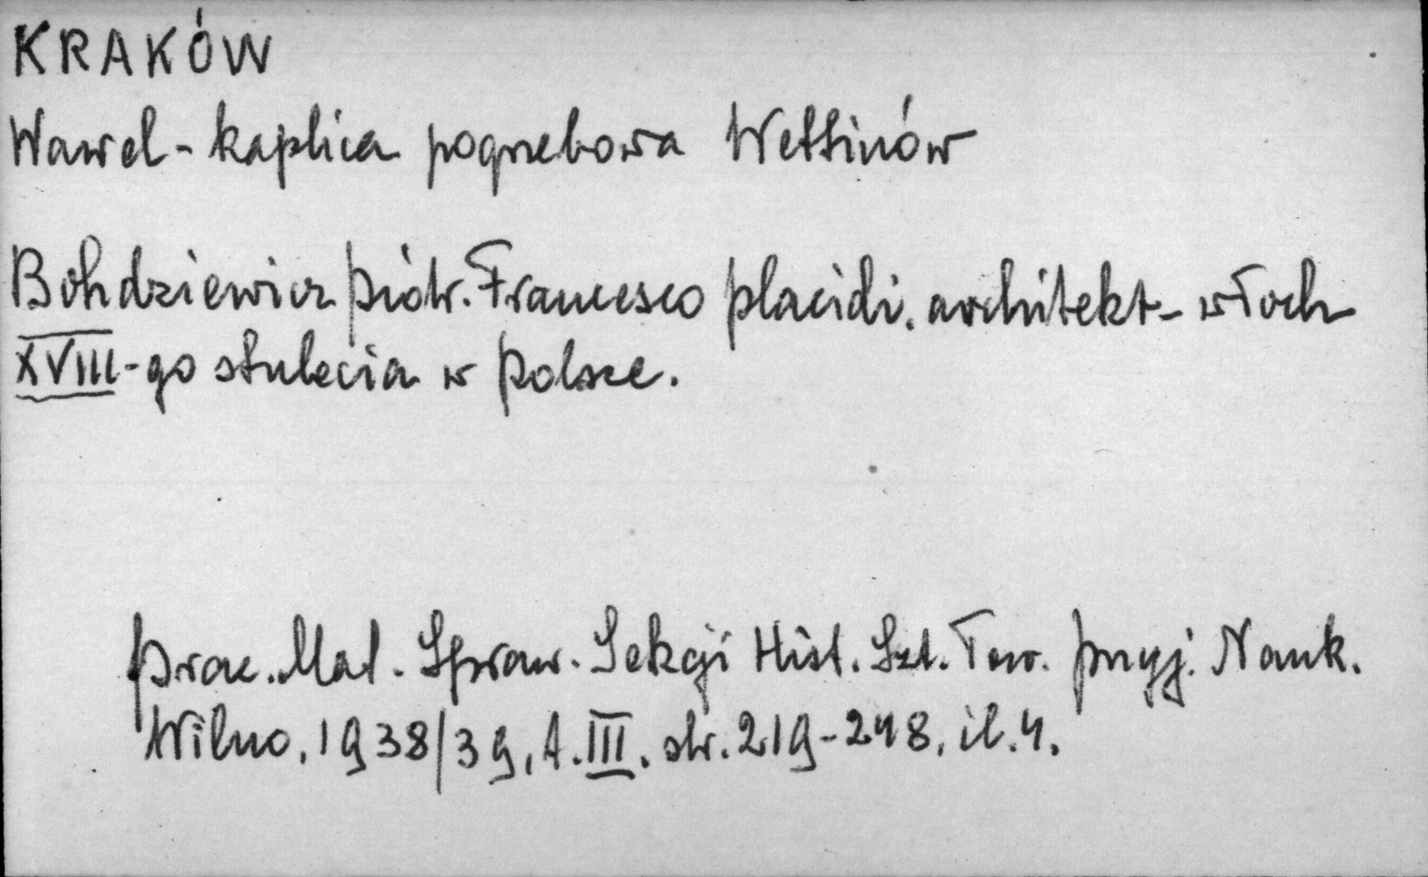 KRAKÓW
Wawel - kaplica pogrzebowa Wettinów
Bohdziewicz Piotr. Francesco Placidi, architekt - włoch
XVIII-go stulecia w Polsce.
Prac. Mat. Spraw. Sekcji Hist. Szt. Tow. Przyj. Nauk.
Wilno, 1938/39, t. III. str. 219-248, il. 4.